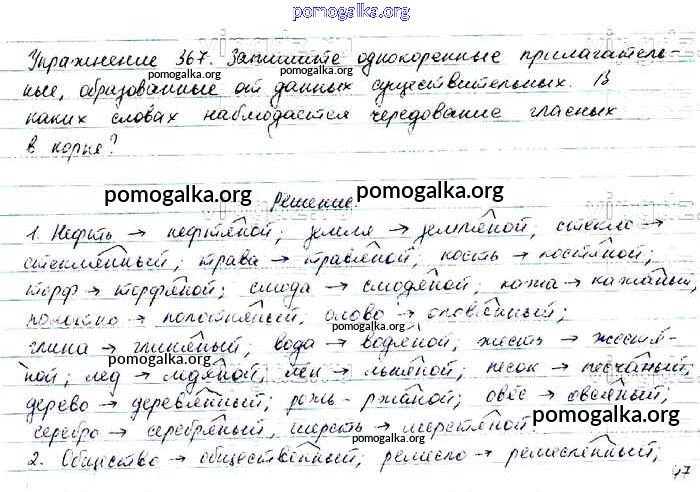 pomogalka.org
Упражнение 367. Запишите однокоренные прилагатель-
pomogalka.org pomogalka.org
ные, образованные от данных существительных. В
каких словах наблюдается чередование гласных
в корне?
pomogalka.org Решение pomogalka.org
1. Нефть → нефтяной; земля → земляной; стекло →
стеклянный; трава → травяной; кость → костяной;
торф → торфяной; смола → смоляной; кожа → кожаный,
полотно → полотняный; олово → оловянный;
pomogalka.org
глина → глиняный; вода → водяной; жесть → жестя-
pomogalka.org
ной; лед → ледяной, лён → льняной; песок → песчаный;
дерево → деревянный; рожь - ржаной; овёс → овсяный;
pomogalka.org
серебро → серебряный, шерсть → шерстяной.
pomogalka.org
2. Общество → общественный; ремесло → ремесленный;
47